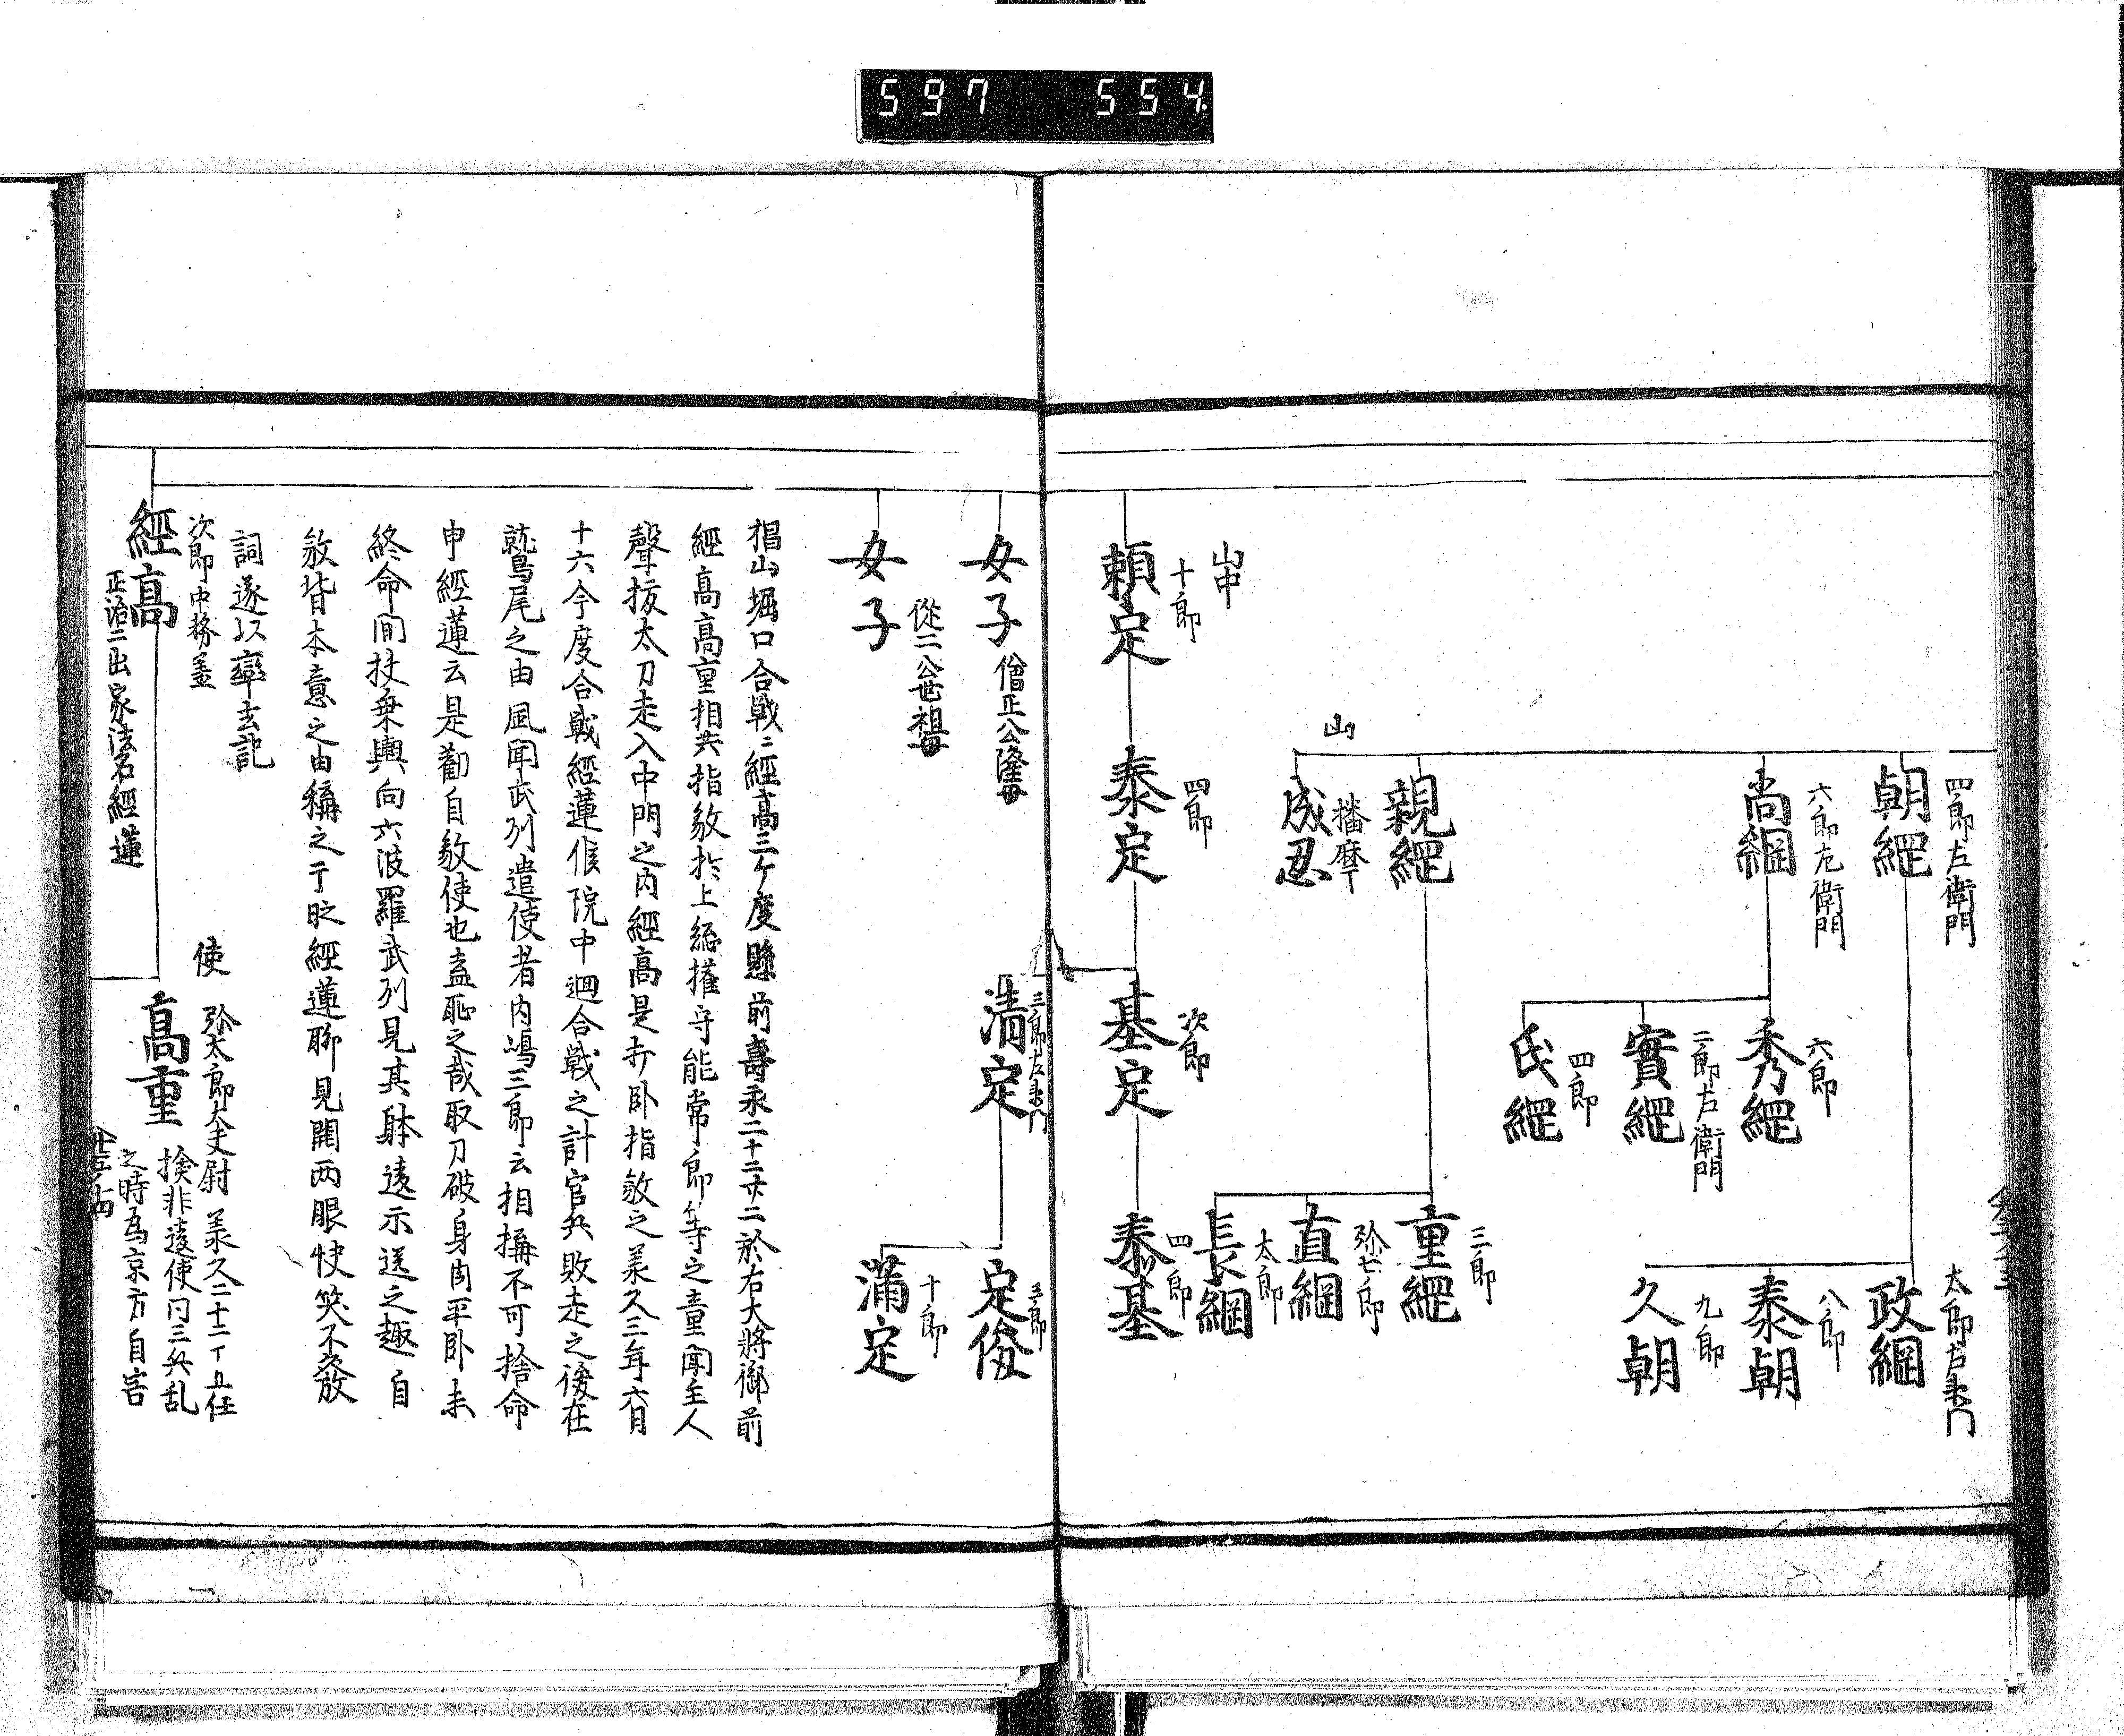 597 554
四郎左衛門
朝經
太郎左衛門
政綱
八郎
泰朝
九郎
久朝
六郎左衛門
尚綱
六郎
秀經
二郎左衛門
實經
四郎
氏經
親經
三郎
重經
弥七郎
直綱
太郎
長綱
山
播磨
成忍
山中
十郎
頼定
四郎
泰定
次郎
基定
四郎
泰基
三郎左衛門
清定
三郎
定俊
十郎
蒲定
女子
僧正公隆母
女子
從二公世祖母
相山堀口合戦ニ經高三ケ度縣前壽永二十二廿二於右大將御前
經高高重相共指敵於上総権守能常郎等之童聞主人
聲抜太刀走入中門之内經高是打臥指敵之美久三年六月
十六今度合戦經蓮候院中廻合戦之計官兵敗走之後在
鷲尾之由風聞武列遣使者内嶋三郎云相搆不可捨命
申經蓮云是勸自敎使也盍恥之哉取刀破身肉平臥未
終命間扶乗輿向六波羅武列見其躰遠示送之趣自
敎背本意之由稱之于時經蓮聊見開両眼快笑不發
詞遂以率去記
次郎中務丞
經高
正治二出家法名經蓮
使
弥太郎大夫尉
高重
美久二十二丁五任
撿非違使同三兵乱
之時為京方自害